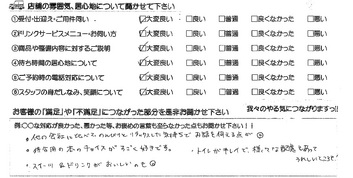 店舗の雰囲気、居心地について聞かせて下さい
①受付・出迎え・ご用件伺い . ☑大変良い □良い □普通 □良くなかった □悪い
②ドリンクサービスメニュー・お伺い方 ☑大変良い □良い □普通 □良くなかった □悪い
③商品や整備内容に対するご説明 ☑大変良い □良い □普通 □良くなかった □悪い
④待ち時間の居心地について ☑大変良い □良い □普通 □良くなかった □悪い
⑤ご予約時の電話対応について ☑大変良い □良い □普通 □良くなかった □悪い
⑥スタッフの身だしなみ、笑顔について ☑大変良い □良い □普通 □良くなかった □悪い
お客様の「満足」や「不満足」につながった部分を是非お聞かせ下さい 我々のやる気につながります
例:○○な対応が良かった、悪かった等、お褒めの言葉も至らなかった点もお聞かせ下さい!!
・他の会社に比べてのんびりリラックスした気持ちでお話を伺える点が
・待合所の本のチョイスがすごく好きです。
・スイーツ&ドリンクがおいしいのも
・トイレがキレイで、様々な配慮もあって
うれしいところです